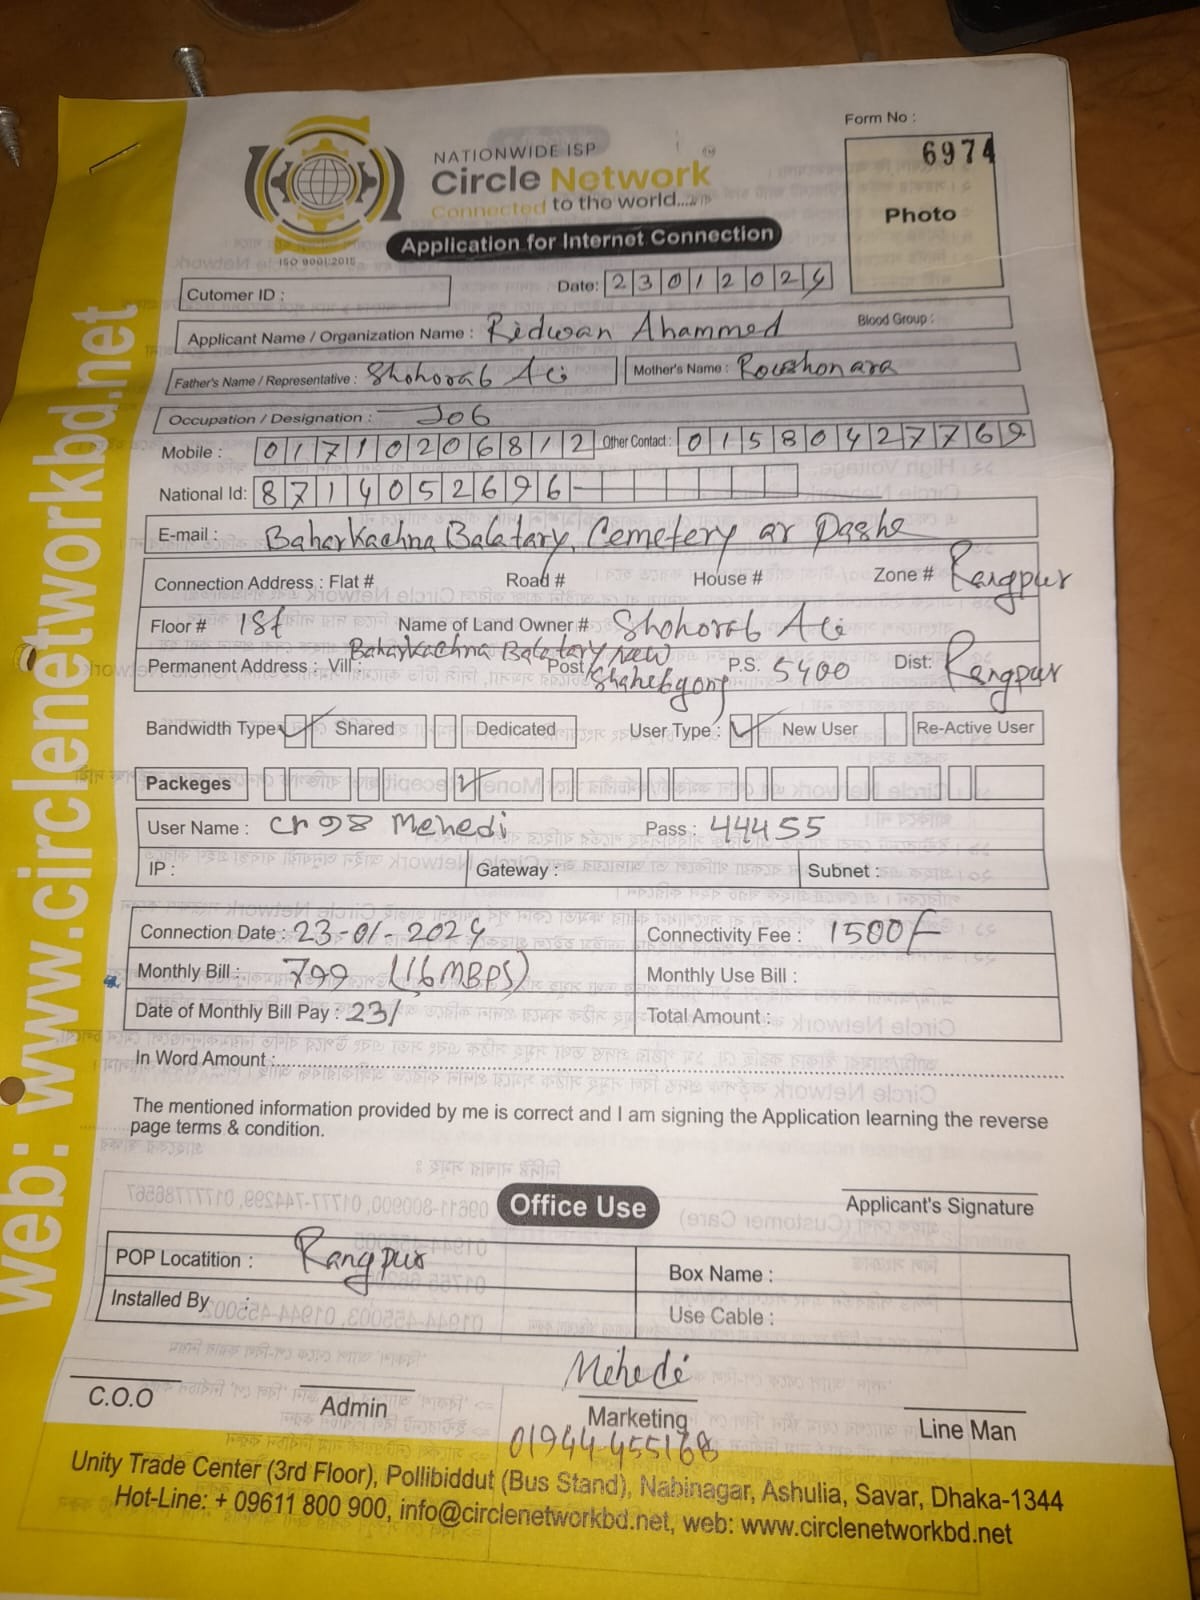 Form No :
6974
Photo
NATIONWIDE ISP
Circle Network
Connected to the world....
ISO 9001:2015
Application for Internet Connection
Cutomer ID :
Date: 23012024
Applicant Name / Organization Name : Ridwan Ahammed
Blood Group :
Father's Name / Representative : Shohorab Ali
Mother's Name : Roushonara
Occupation / Designation : Job
Mobile : 01710206812 Other Contact : 01580427769
National Id: 8714052696
E-mail : Baharkachna Balatary, Cemetery ar Pashe
Connection Address : Flat # Road # House # Zone # Rangpur
Floor # 1st Name of Land Owner # Shohorab Ali
Permanent Address : Vill : Baharkachna Balatary new Post Shahebgonj P.S. 5400 Dist: Rangpur
Bandwidth Type Shared Dedicated User Type : New User Re-Active User
Packeges
User Name : cr98 Mehedi Pass : 44455
IP : Gateway : Subnet :
Connection Date : 23-01-2024 Connectivity Fee : 1500
Monthly Bill : 799 (16MBPS) Monthly Use Bill :
Date of Monthly Bill Pay : 23/ Total Amount :
In Word Amount :
The mentioned information provided by me is correct and I am signing the Application learning the reverse
page terms & condition.
Applicant's Signature
Office Use
POP Locatition : Rangpur Box Name :
Installed By : Use Cable :
C.O.O
Admin
Mehedi
Marketing
01944-455168
Line Man
Unity Trade Center (3rd Floor), Pollibiddut (Bus Stand), Nabinagar, Ashulia, Savar, Dhaka-1344
Hot-Line: + 09611 800 900, info@circlenetworkbd.net, web: www.circlenetworkbd.net
web: www.circlenetworkbd.net